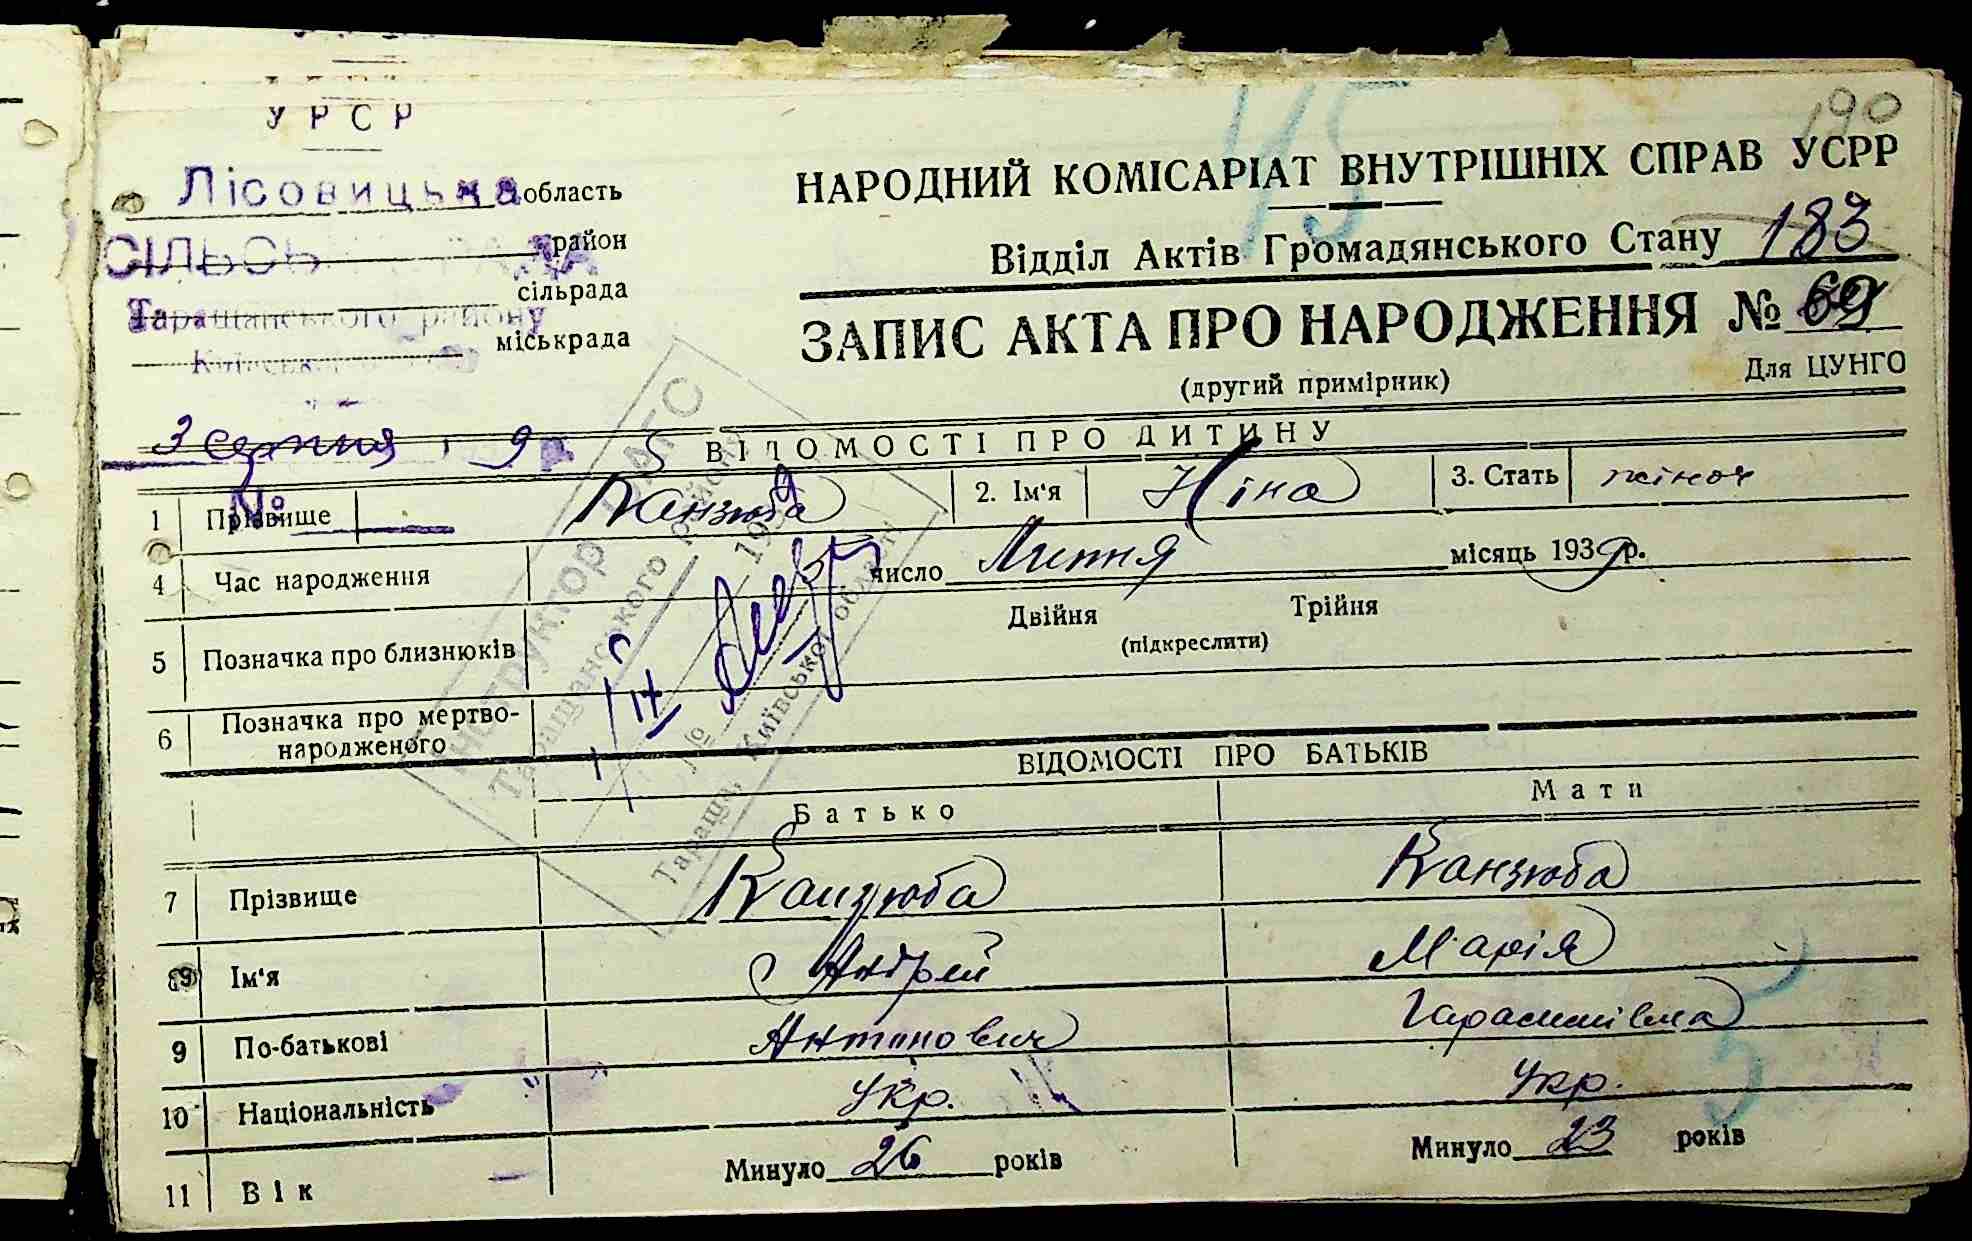 УРСР
190
45
Лісовицька область
НАРОДНИЙ КОМІСАРІАТ ВНУТРІШНІХ СПРАВ УСРР
СІЛЬСЬ РАДА район
Відділ Актів Громадянського Стану 183
сільрада
Таращанського району
міськрада
ЗАПИС АКТА ПРО НАРОДЖЕННЯ № 69
(другий примірник)
Для ЦУНГО
3 серпня 19
ВІДОМОСТІ ПРО ДИТИНУ
№
1 Прізвище Канзюба 2. Ім'я Ніна 3. Стать жіноч
4 Час народження число Липня місяць 1939 р.
5 Позначка про близнюків Двійня Трійня
(підкреслити)
6 Позначка про мертво-
народженого
Інструктор ЗАГС
Таращанського району
№
Тараща, Київської області
ВІДОМОСТІ ПРО БАТЬКІВ
Батько Мати
7 Прізвище Канзюба Канзюба
8 Ім'я Андрій Марія
9 По-батькові Антонович Гарасимівна
10 Національність Укр. Укр.
11 Вік Минуло 26 років Минуло 23 років